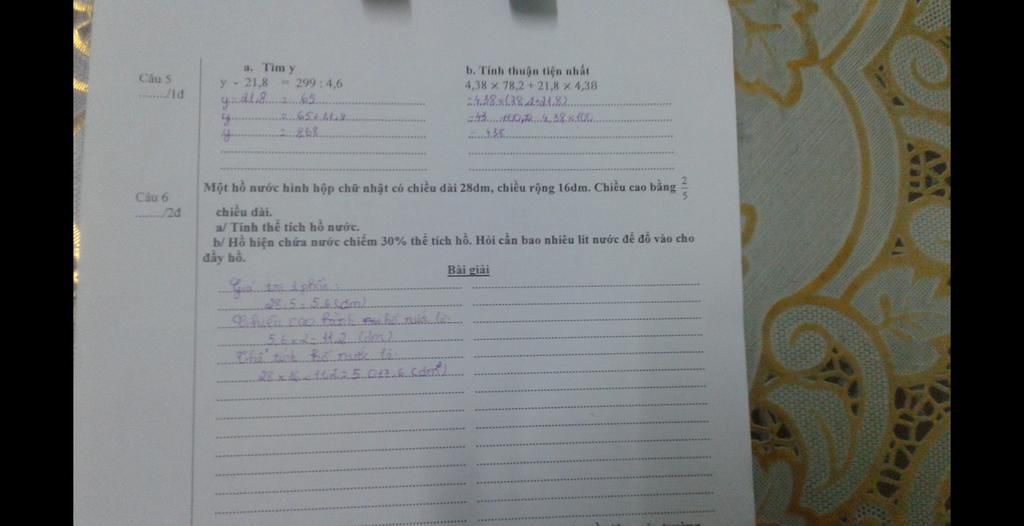 a. Tìm y
b. Tính thuận tiện nhất
Câu 5
......../1đ
y - 21,8 = 299 : 4,6
4,38 × 78,2 + 21,8 × 4,38
y - 21,8 = 65
= 4,38 × (78,2+21,8)
y = 65+21,8
4,38 × 100
y = 868
= 438
Câu 6
......../2đ
Một hồ nước hình hộp chữ nhật có chiều dài 28dm, chiều rộng 16dm. Chiều cao bằng 2/5
chiều dài.
a/ Tính thể tích hồ nước.
b/ Hồ hiện chứa nước chiếm 30% thể tích hồ. Hỏi cần bao nhiêu lít nước để đổ vào cho
đầy hồ.
Bài giải
Giá trị 1 phần:
28:5=5,6(dm)
Chiều cao hồ nước là:
5,6 x 2 = 11,2 (dm)
Thể tích hồ nước là:
28 x 16 x 11,2 = 5 017,6 (dm³)